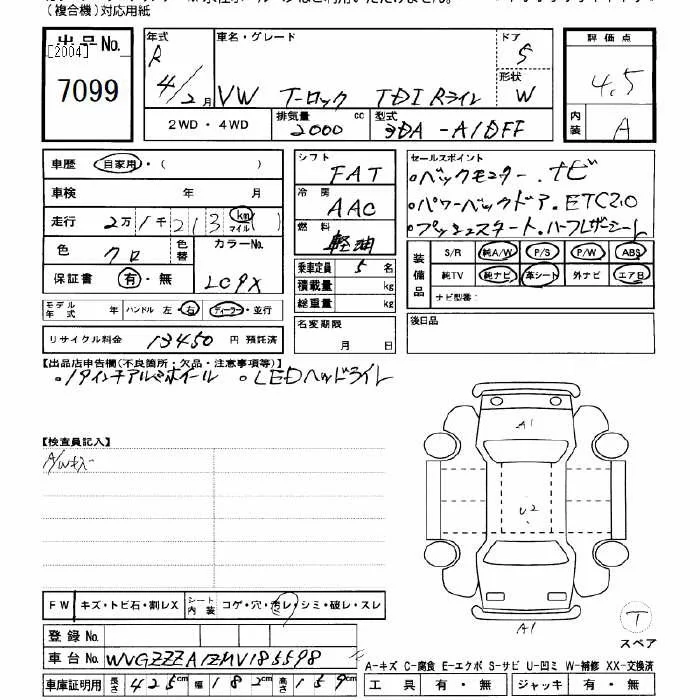 (複合機)対応用紙
出品No. 年式 車名・グレード ドア 評価点
[2004] R 5 4.5
7099 4/2月 VW T-ロック TDI Rライン 形状 W
2WD・4WD 排気量 2000 cc 型式 3DA-A1DFF 内装 A
車歴 自家用・( ) シフト FAT セールスポイント
車検 年 月 冷房 AAC ・バックモニター.ナビ
走行 2万1千213 km マイル ( ) 燃料 軽油 ・パワーバックドア.ETC2.0
色 クロ 色替 カラーNo. LC9X ・プッシュスタート.ハーフレザーシート
保証書 有・無 乗車定員 5名 装備品 S/R 純A/W P/S P/W ABS
積載量 kg 純TV 純ナビ 革シート 外ナビ エアB
モデル年式 年 ハンドル 左・右 ディーラー・並行 総重量 kg ナビ型番:
リサイクル料金 13450 円 預託済 名変期限 月 日 後日品
【出品店申告欄(不良箇所・欠品・注意事項等)】
・17インチアルミホイール ・LEDヘッドライト
A1
【検査員記入】
A/Wキズ
U2
FW キズ・トビ石・割レX シート内装 コゲ・穴・汚レ・シミ・破レ・スレ
A1
T
スペア
登録No.
車台No. WVGZZZA1ZMV185598
A-キズ C-腐食 E-エクボ S-サビ U-凹ミ W-補修 XX-交換済
車庫証明用 長さ 425cm 幅 182cm 高さ 159cm 工具 有・無 ジャッキ 有・無